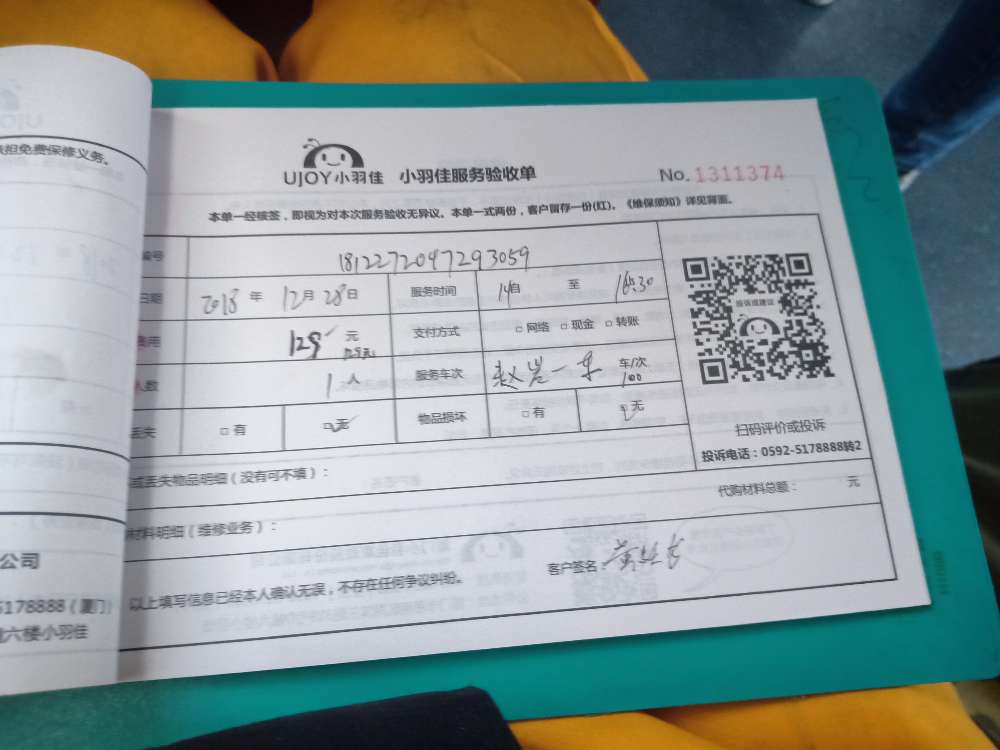 担免费保修义务。
UJOY小羽佳 小羽佳服务验收单 No. 1311374
本单一经核签，即视为对本次服务验收无异议。本单一式两份，客户留存一份(红)。《维保须知》详见背面。
编号 1812272097293059
日期 2018 年 12 月 28 日 服务时间 至 16:30
费用 129 元 支付方式 □ 网络 □ 现金 □ 转账
人数 1 人 服务车次 车/次
丢失 □ 有 □ 无 物品损坏 □ 有 □ 无
投诉或建议
扫码评价或投诉
投诉电话：0592-5178888转2
或丢失物品明细（没有可不填）：
代购材料总额： 元
材料明细（维修业务）：
客户签名：
以上填写信息已经本人确认无误，不存在任何争议纠纷。
公司
5178888（厦门）
六楼小羽佳